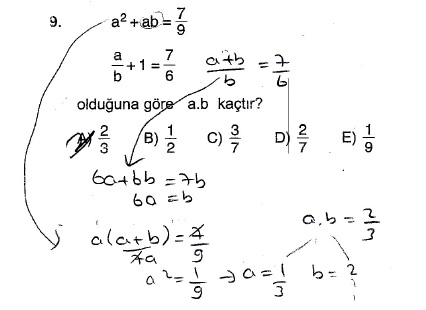 9. a² + ab = 7/9
a/b + 1 = 7/6 (a+b)/b = 7/6
olduğuna göre a.b kaçtır?
A) 2/3 B) 1/2 C) 3/7 D) 2/7 E) 1/9
6a+6b = 7b
6a = b
a.b = 2/3
a(a+b) = 7/9
7a
a² = 1/9 → a = 1/3 b = 2